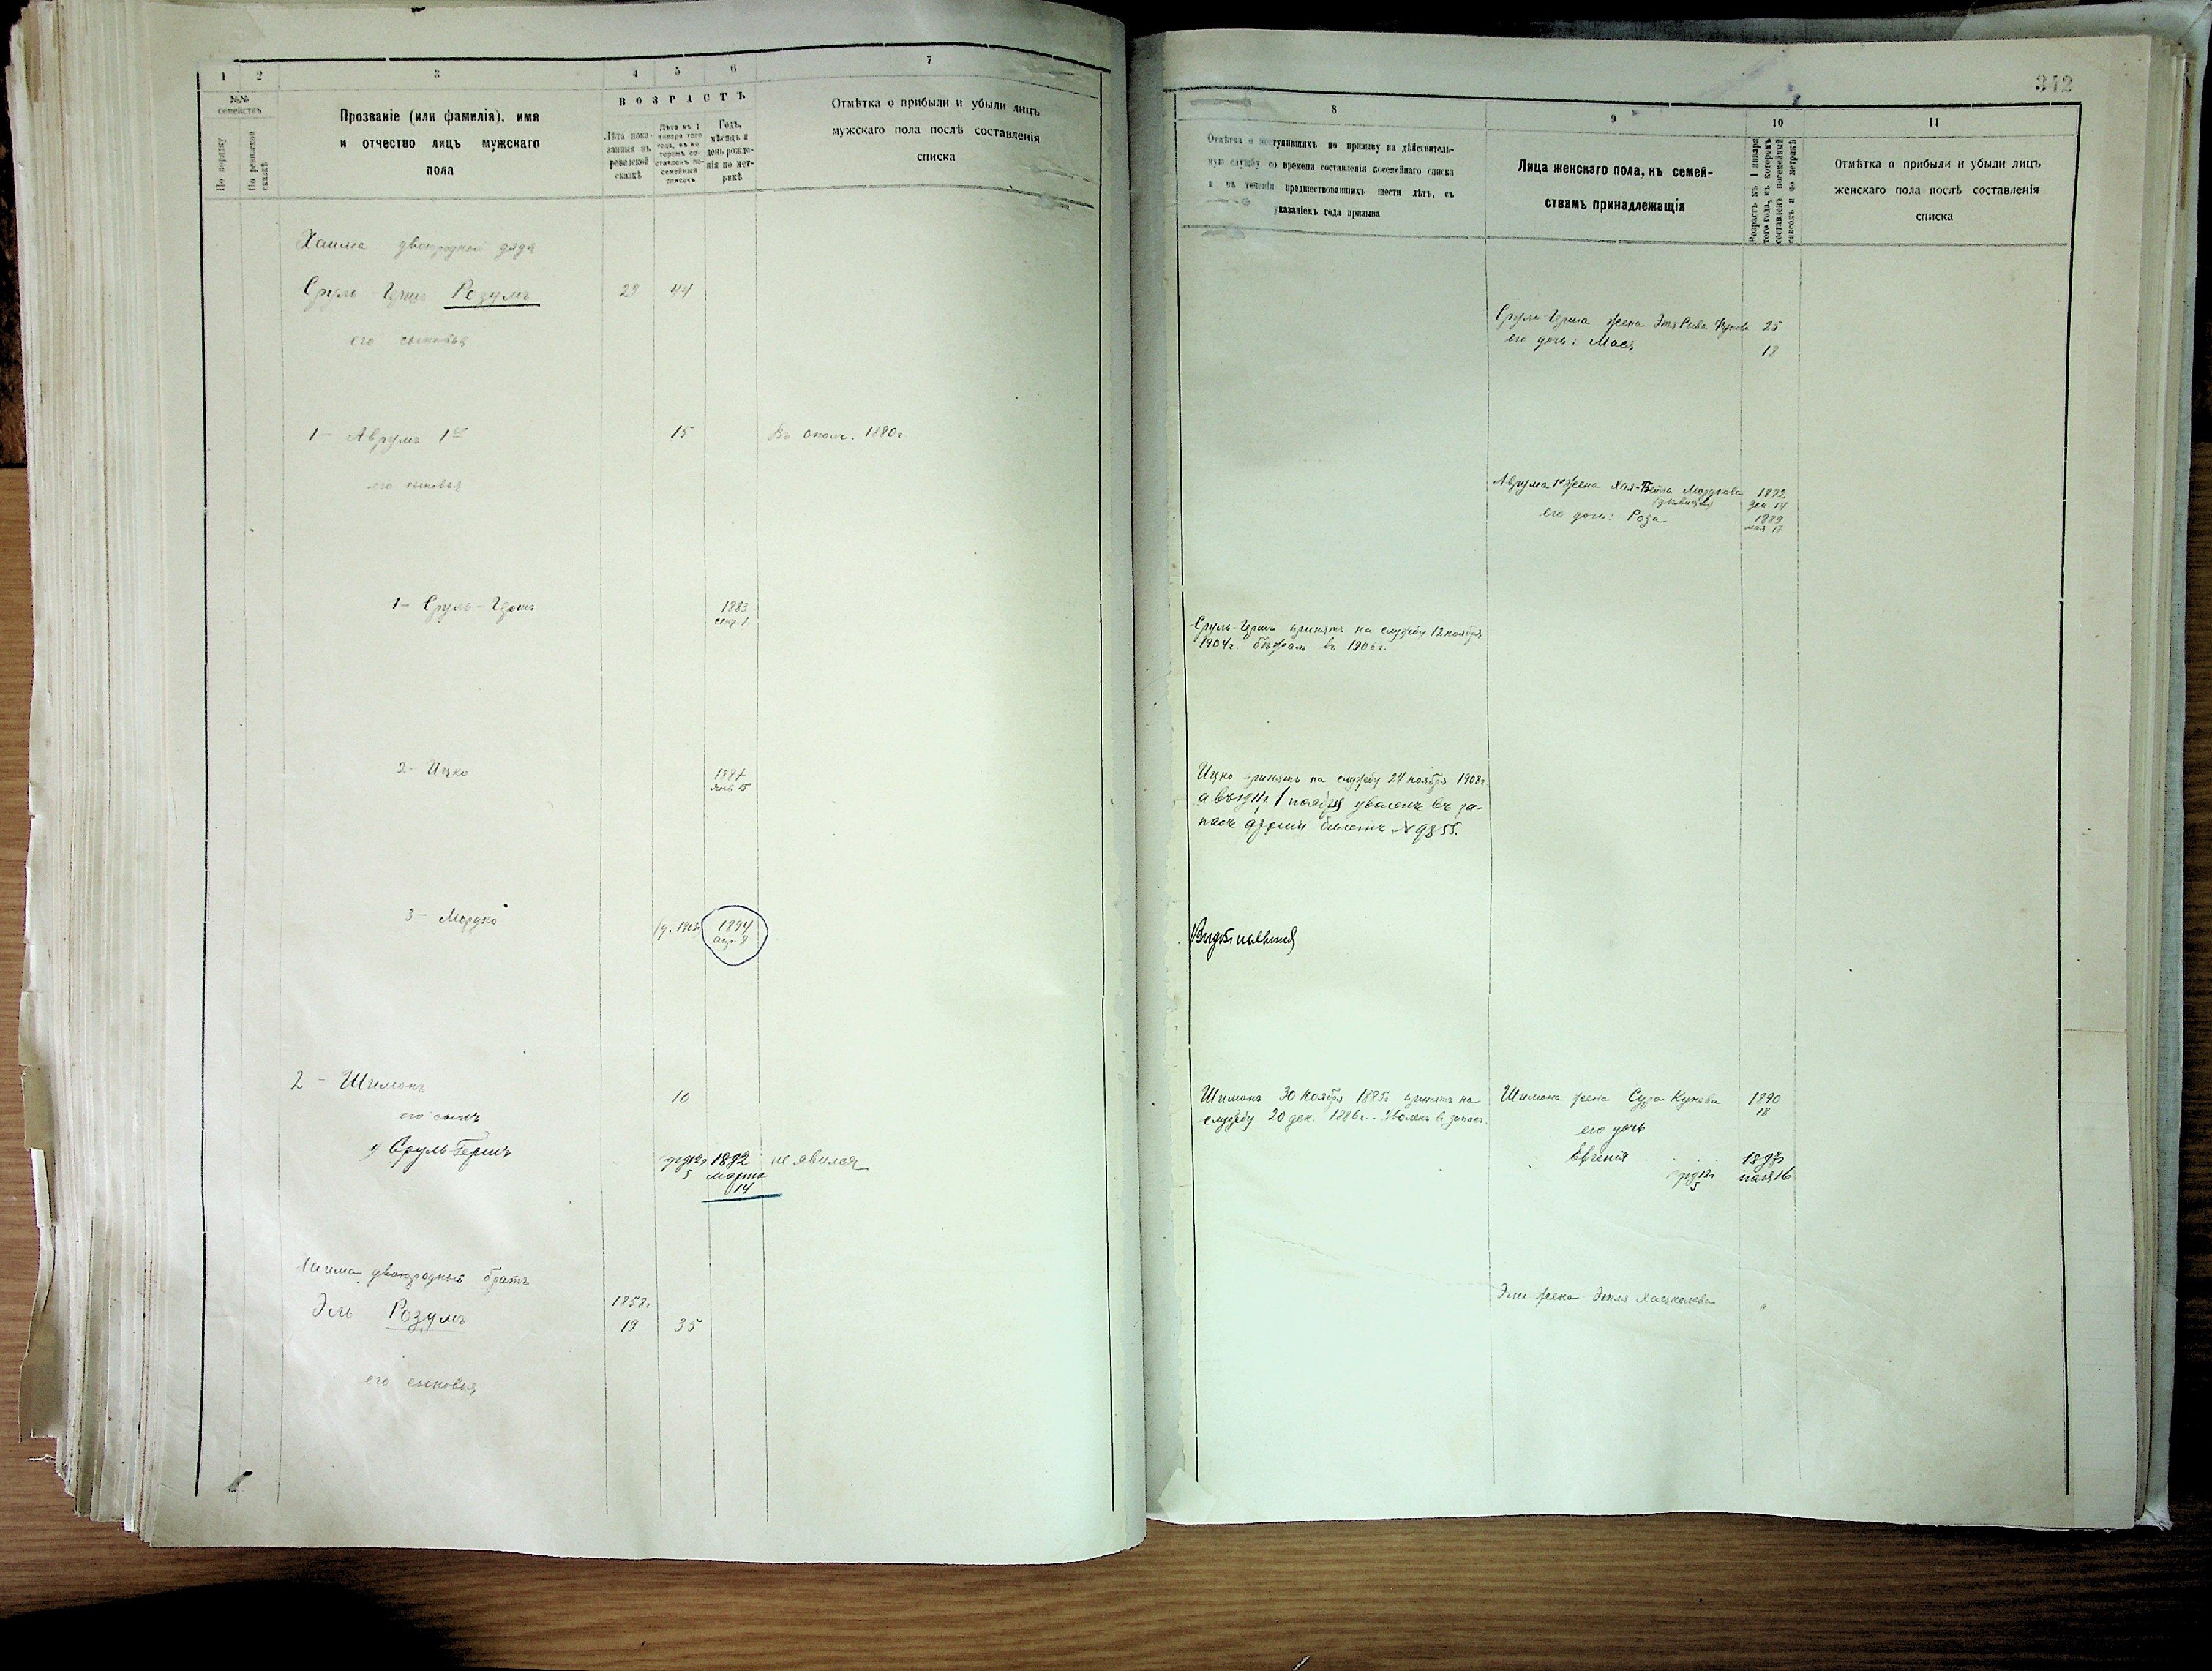 1 2 3 4 5 6 7
№№ семействъ
По порядку
По ревизской сказкѣ
Прозваніе (или фамилія), имя
и отчество лицъ мужскаго
пола
ВОЗРАСТЪ
Лѣта пока-
занныя въ
ревизской
сказкѣ
Лѣта къ 1
января того
года, въ ко
торомъ со-
ставленъ по-
семейный
списокъ
Годъ,
мѣсяцъ и
день рожде-
нія по мет-
рикѣ
Отмѣтка о прибыли и убыли лицъ
мужскаго пола послѣ составленія
списка
Хаима двоюродный дядя
Сруль-Герш Розумъ 29 44
его сыновья
1- Аврумъ 1й 15 Въ ополч. 1880г.
его сыновья
1- Сруль-Герш 1883
сент. 1
2- Ицко 1887
янв 15
3- Мордко 1894
2 - Шимонъ 10
его сынъ
Сруль-Гершъ 1892 не явился
5 марта
14
Хаима двоюродный братъ
1858г.
Эль Розумъ 19 35
его сыновья
342
8 9 10 11
Отмѣтка о поступившихъ по призыву на дѣйствитель-
ную службу со времени составленія посемейнаго списка
и въ теченіи предшествовавшихъ шести лѣтъ, съ
указаніемъ года призыва
Лица женскаго пола, къ семей-
ствамъ принадлежащія
Возрастъ къ 1 января
того года, въ которомъ
составленъ посемейный
списокъ и по метрикѣ
Отмѣтка о прибыли и убыли лицъ
женскаго пола послѣ составленія
списка
Сруль Герша жена Этя Рива 25
его дочь: Мася 18
Аврума 1го жена Хая-Бейла Мордкова 1882
его дочь: Роза 1889
мая 17
Сруль-Гершъ принятъ на службу 12 ноября
1904г. бѣжалъ въ 1906г.
Ицко принятъ на службу 24 ноября 1908г
а въ 1911г 1 ноября уволенъ въ за-
пасъ арміи билетъ № 9855.
Шимонъ 30 Ноября 1885г. принятъ на
службу 20 дек. 1886г. Уволенъ въ запасъ.
Шимона жена Сура Кунева 1890
18
его дочь
Евгенія
5 мая 16
Эли жена Этля Хацкелева "